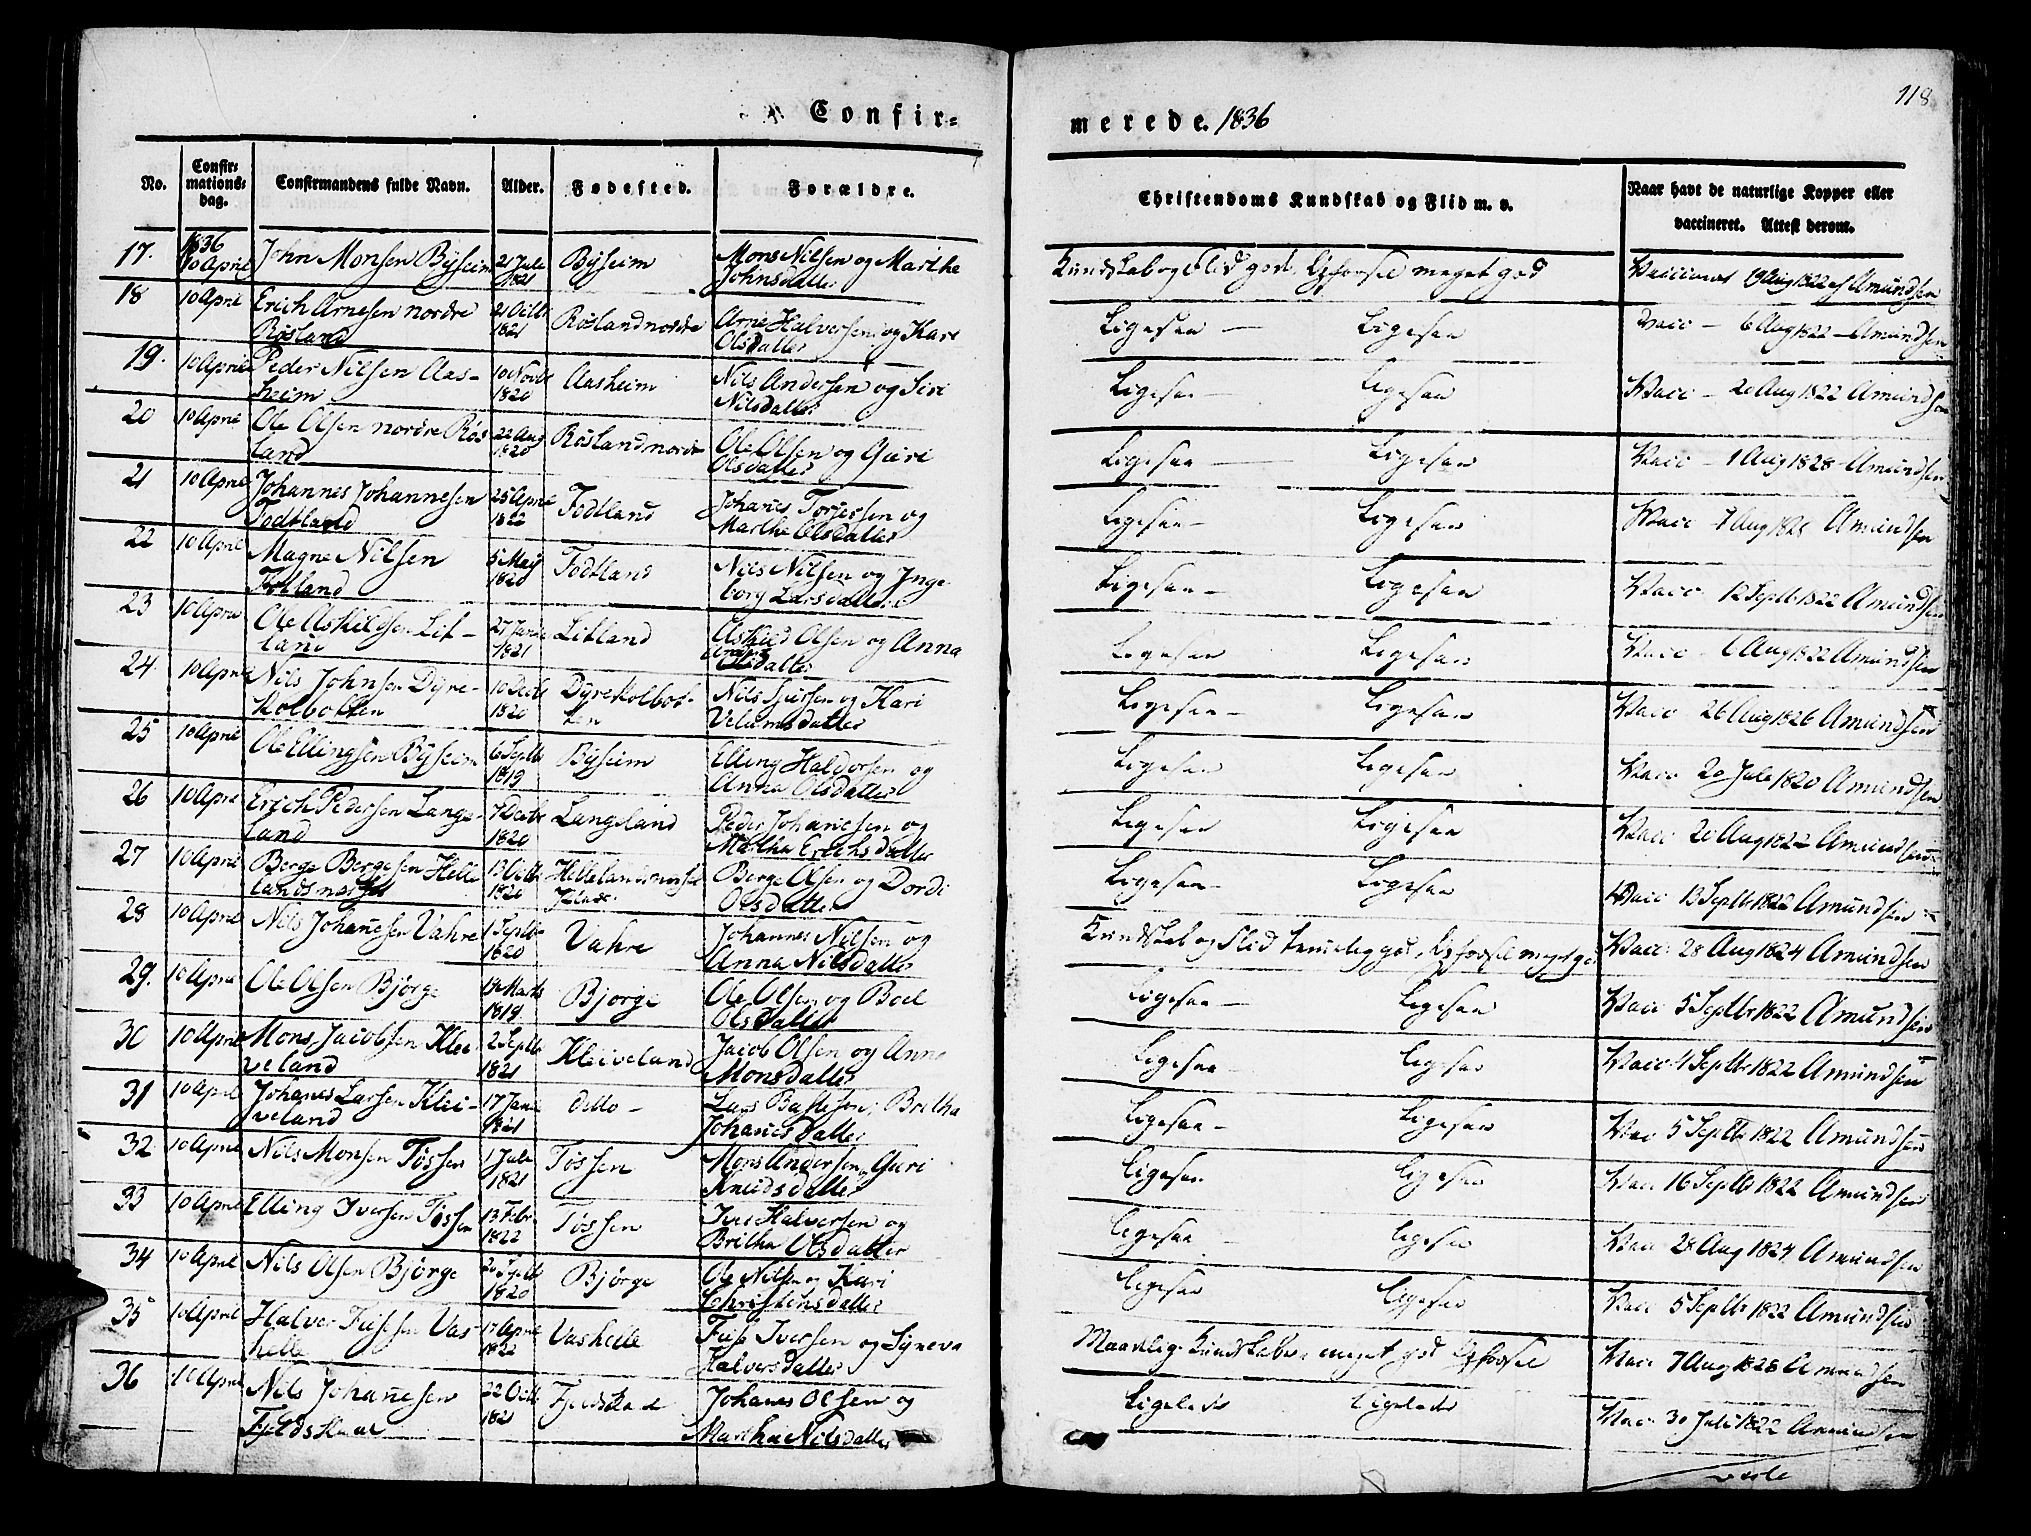 118
Confir-
merede. 1836
No. Confir-mations-dag. Confirmandens fulde Navn. Alder. Fødested. Forældre. Christendoms Kundskab og Flid m. v. Naar havt de naturlige Kopper eller vaccineret. Attest derom.
17. 1836 10 April John Monsen Byseim 21 Juli 1821 Byseim Mons Nilsen og Marthe Johnsdatter Kundskab og Flid god. Opførsel meget god Vaccineret 19 Aug 1822 af Amundsen
18 10 April Erich Arnesen nordre Røsland 21 Octb 1821 Røsland nordre Arne Halversen og Kari Olsdatter Ligesaa — Ligesaa Vacc — 6 Aug 1822 — Amundsen
19. 10 April Peder Nilsen Aas-heim 10 Novb 1820 Aasheim Nils Andersen og Siri Nilsdatter Ligesaa — Ligesaa Vacc — 20 Aug 1822 Amundsen
20 10 April Ole Olsen nordre Røs land 22 Aug 1820 Røsland nordre Ole Olsen og Guri Olsdatter Ligesaa — Ligesaa Vacc — 1 Aug 1828 — Amundsen
21 10 April Johannes Johannesen Fodtland 25 April 1822 Fodtland Johanes Torjersen og Martha Olsdatter Ligesaa — Ligesaa Vacc — 7 Aug Amundsen
22 10 April Magne Nilsen 5 May 1820 Fodtland Nils Nilsen og Inge borg Larsdatter Ligesaa — Ligesaa Vacc. 12 Septb 1822 Amundsen
23 10 April Ole Askildsen Lit-land 27 1821 Litland Askild Olsen og Anna Ligesaa Ligesaa Vacc — 6 Aug 1822 Amundsen
24. 10 April Nils Johnsen Dyre-kolbotten 10 Decb 1820 Dyrekolbot-ten Nils og Kari datter Ligesaa — Ligesaa Vacc 26 Aug 1826 Amundsen
25 10 April Ole Ellingsen Byseim 6 Septb 1819 Byseim Elling Haldorsen og Anna Olsdatter Ligesaa Ligesaa Vacc 20 Juli 1820 Amundsen
26 10 April Erich Pedersen Lange-land 7 Decb 1820 Langeland Peder Johanesen og Martha Erichsdatter Ligesaa Ligesaa Vacc 20 Aug 1822 Amundsen
27 10 April Berge Bergesen Helle landsnæsset 13 Octb 1820 Hellelandsnæsset Berge Olsen og Dordi Olsdatter Ligesaa — Ligesaa Vacc 13 Septb 1822 Amundsen
28 10 April Nils Johanesen Vahre 1 Septb 1820 Vahre Johannes Nilsen og Anna Nilsdatter Kundskab og Flid temmelig god, Opførsel meget god Vacc. 28 Aug 1824 Amundsen
29. 10 April Ole Olsen Bjørge 13 Marts 1819 Bjørge Ole Olsen og Boel Olsdatter Ligesaa — Ligesaa Vacc 5 Septbr 1822 Amundsen
30 10 April Mons Jacobsen Klei veland 2 Septb 1821 Kleiveland Jacob Olsen og Anna Monsdatter Ligesaa Ligesaa Vacc. 4 Septbr 1822 Amundsen
31 10 April Johanes Larsen Klei-veland 17 Janu 1821 detto — Lars , Britha Johanesdatter Ligesaa — Ligesaa Vac 5 Septbr 1822 Amundsen
32 10 April Nils Monsen Tøssen 1 Juli 1821 Tøssen Mons Andersen og Guri Knudsdatter Ligesaa Ligesaa Vacc 16 Septbr 1822 Amundsen
33 10 April Elling Iversen Tøssen 13 Febr 1822 Tøssen Iver Halversen og Britha Olsdatter Ligesaa Ligesaa Vacc 28 Aug 1824 Amundsen
34 10 April Nils Olsen Bjørge 20 Septb 1820 Bjørge Ole Nilsen og Kari Christensdatter Ligesaa Ligesaa Vacc 5 Septbr 1822 Amundsen
35 10 April Halver Fusesen Vas helle 17 April 1822 Vashelle Fuse Iversen og Syneva Halversdatter Maadelig Kundskaber, meget god Opførsel Vacc 7 Aug 1828 Amundsen
36 10 April Nils Johanesen Fjeldskaar 22 Octb 1821 Johanes Olsen og Martha Nilsdatter Ligeledes Ligeledes Vacc 30 Juli 1822 Amundsen